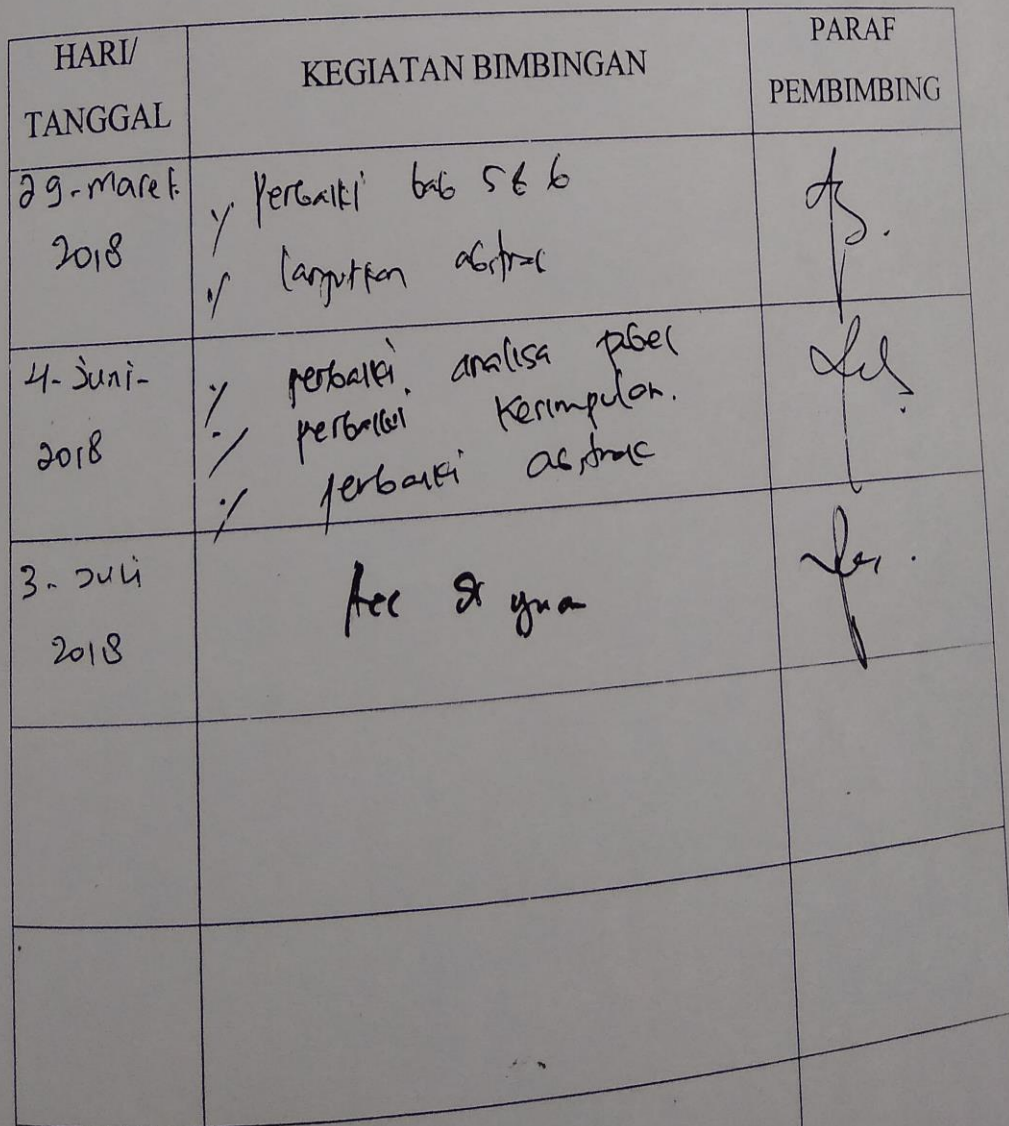 HARI/
TANGGAL
KEGIATAN BIMBINGAN
PARAF
PEMBIMBING
29-Maret
2018
Perbaiki bab 5 & 6
lanjutkan abstrac
4-Juni-
2018
perbaiki analisa tabel
perbaiki Kesimpulan.
perbaiki abstrac
3-Juli
2018
Acc